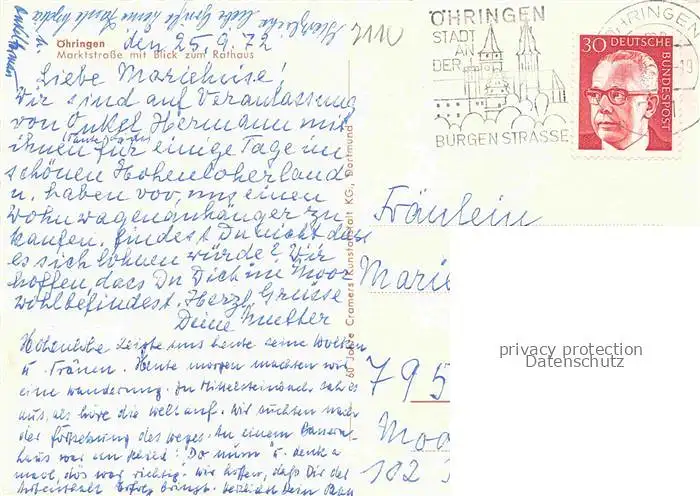 Herzliche liebe Grüße Deine Tante Lydia
Öhringen
Marktstraße mit Blick zum Rathaus
den 25.9.72
Liebe Marieluise!
Wir sind auf Veranlassung
von Onkel Hermann mit
(Tante Lydia)
ihnen für einige Tage im
schönen Hohenloherland
u. haben vor, uns einen
Wohnwagenanhänger zu
kaufen. Findest Du nicht dass
es sich lohnen würde? Wir
hoffen, dass Du Dich im Moor
wohlbefindest. Herzl. Grüsse
Deine Mutter
Hohenlohe zeigte uns heute seine Wolken
u. Tränen. Heute morgen machten wir
eine Wanderung. In Mittelsteinbach sah es
aus, als höre die Welt auf. Wir suchten nach
der Fortsetzung des Weges. An einem Bauern-
haus war ein Schild: "Do num" u. denk a
mol, dös war richtig. Wir hoffen, daß Dir der
60 Jahre Cramers Kunstanstalt KG., Dortmund
ÖHRINGEN
STADT
AN
DER
BURGENSTRASSE
ÖHRINGEN
30 DEUTSCHE
BUNDESPOST
Fräulein
Marie
795
Moo
102
privacy protection
Datenschutz